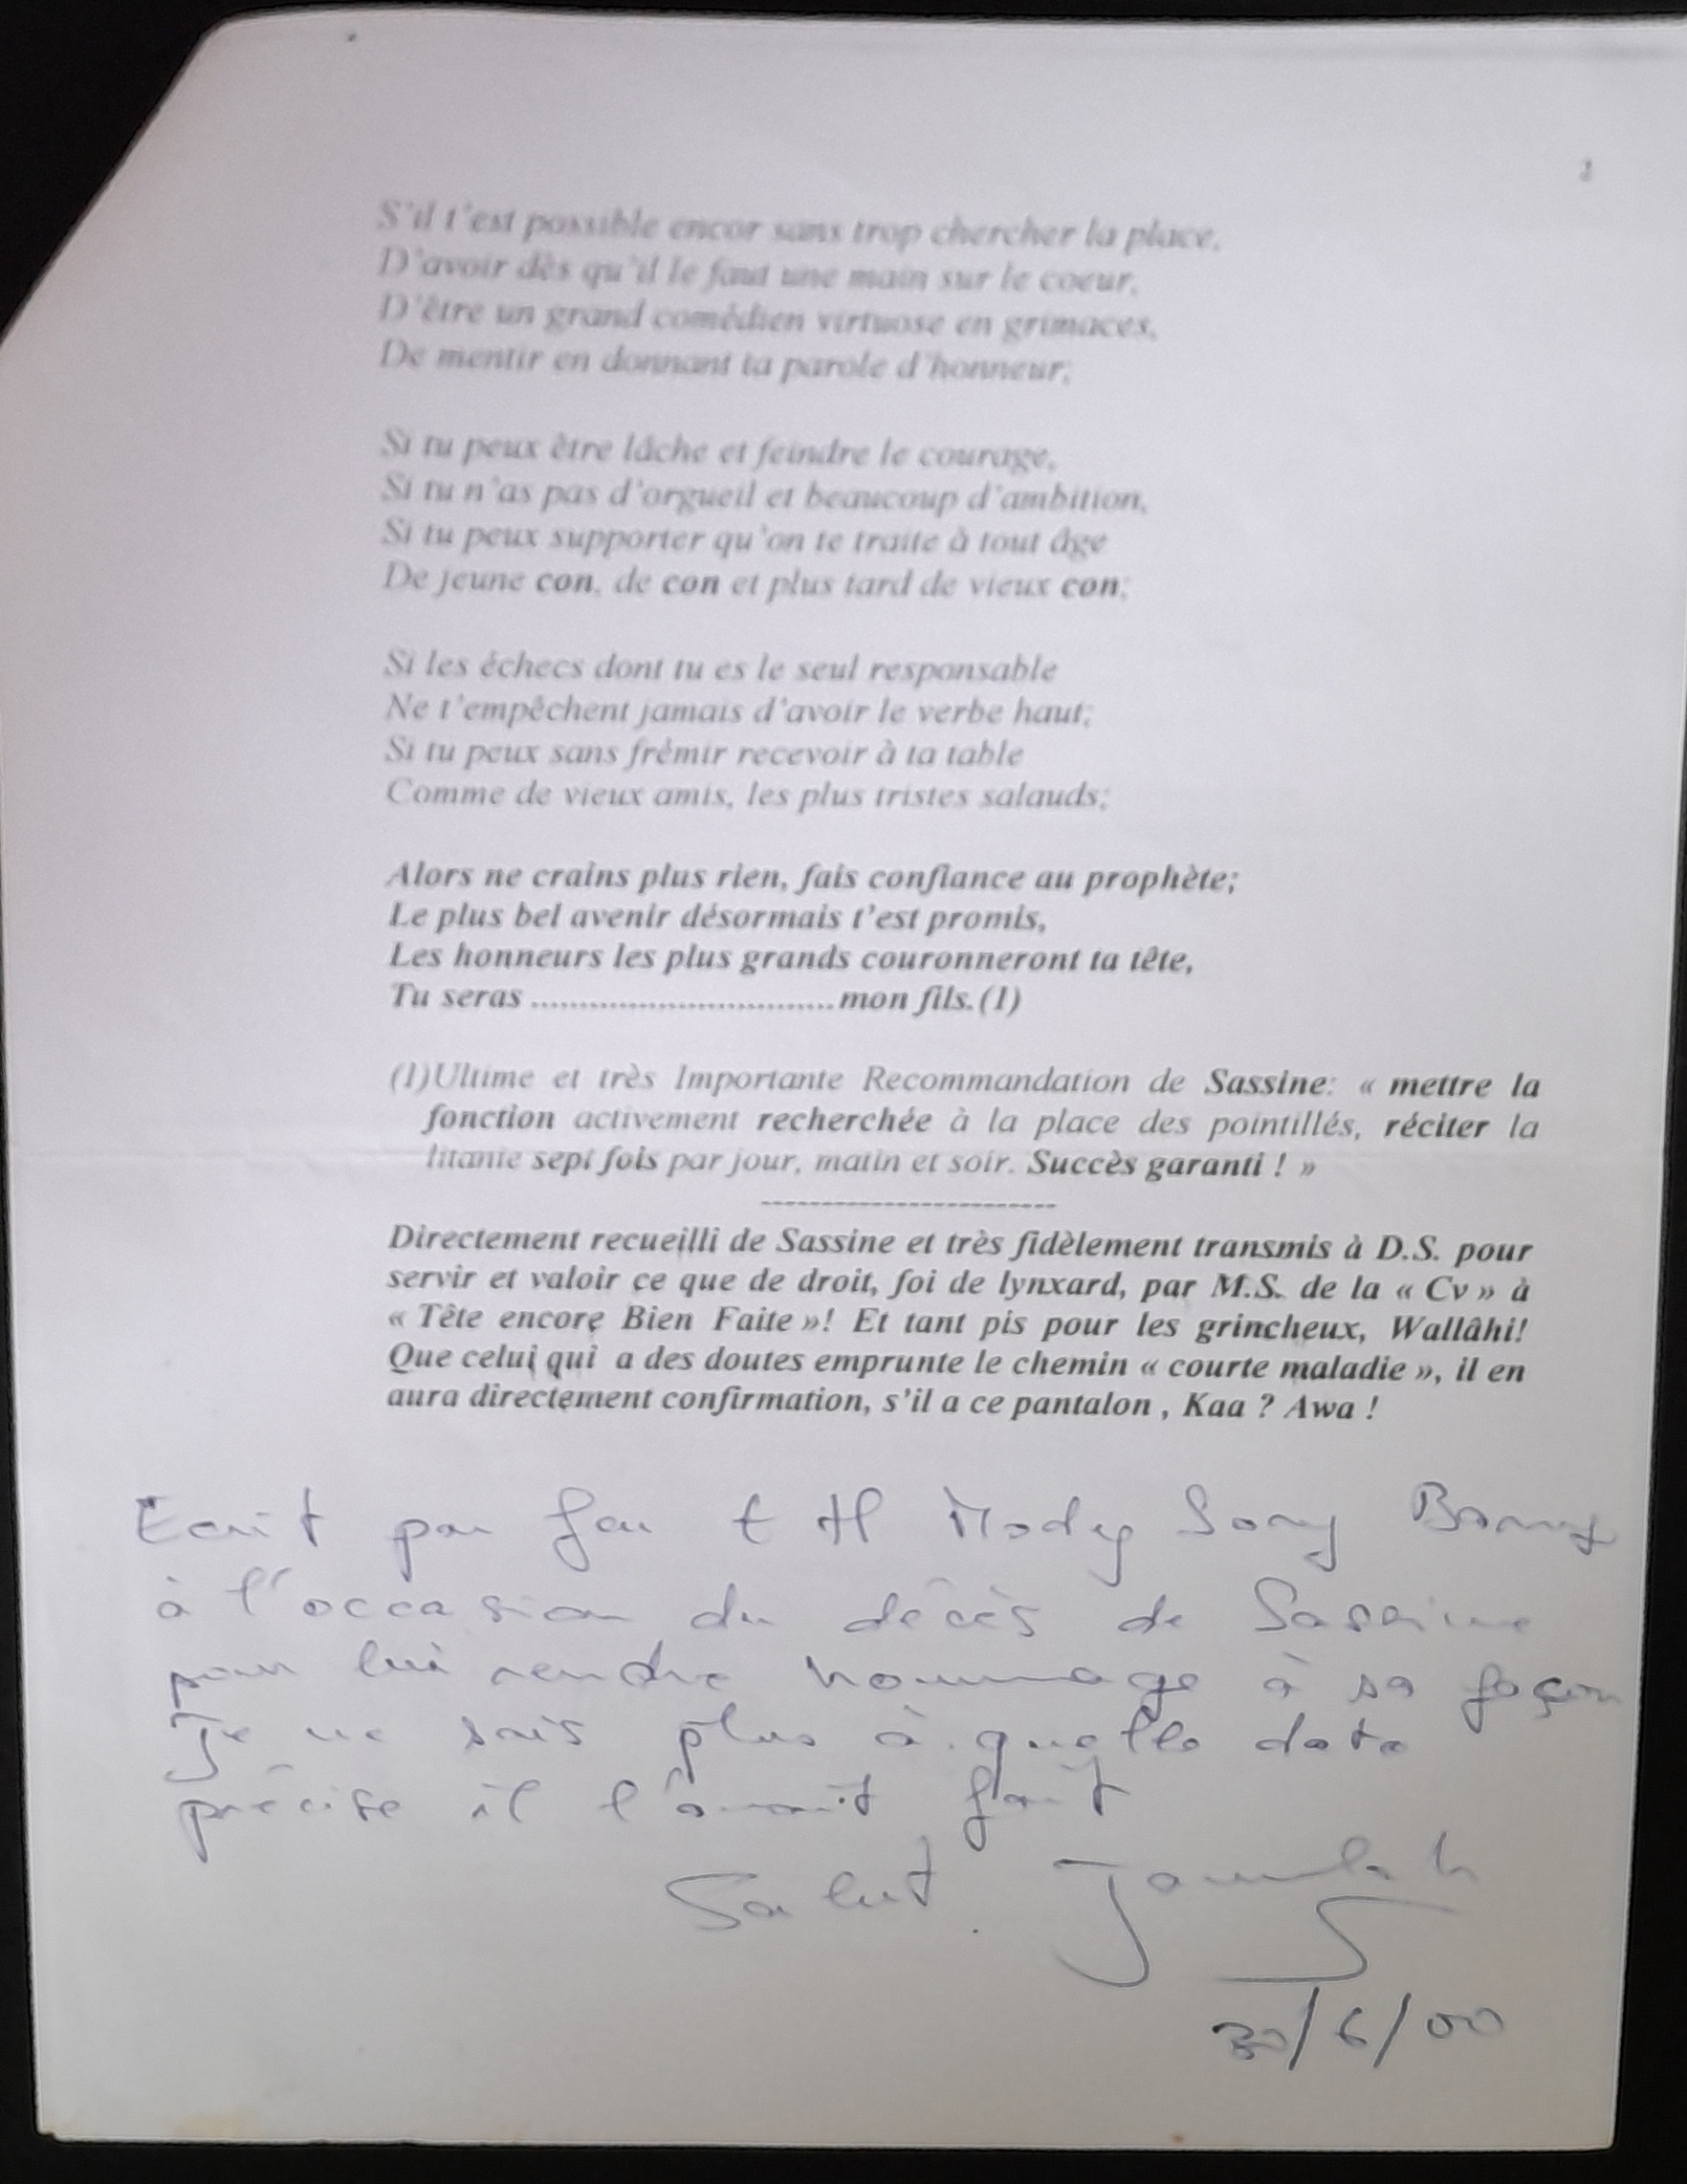 2
S'il t'est possible encor sans trop chercher la place,
D'avoir dès qu'il le faut une main sur le coeur,
D'être un grand comédien virtuose en grimaces,
De mentir en donnant ta parole d'honneur;
Si tu peux être lâche et feindre le courage,
Si tu n'as pas d'orgueil et beaucoup d'ambition,
Si tu peux supporter qu'on te traite à tout âge
De jeune con, de con et plus tard de vieux con;
Si les échecs dont tu es le seul responsable
Ne t'empêchent jamais d'avoir le verbe haut;
Si tu peux sans frémir recevoir à ta table
Comme de vieux amis, les plus tristes salauds;
Alors ne crains plus rien, fais confiance au prophète;
Le plus bel avenir désormais t'est promis,
Les honneurs les plus grands couronneront ta tête,
Tu seras ............................... mon fils.(1)
(1)Ultime et très Importante Recommandation de Sassine: « mettre la
fonction activement recherchée à la place des pointillés, réciter la
litanie sept fois par jour, matin et soir. Succès garanti ! »
------------------------
Directement recueilli de Sassine et très fidèlement transmis à D.S. pour
servir et valoir ce que de droit, foi de lynxard, par M.S. de la « Cv » à
« Tête encore Bien Faite »! Et tant pis pour les grincheux, Wallâhi!
Que celui qui a des doutes emprunte le chemin « courte maladie », il en
aura directement confirmation, s'il a ce pantalon , Kaa ? Awa !
Ecrit par feu E H Mody Sory Barry
à l'occasion du décès de Sassine
pour lui rendre hommage à sa façon
Je ne sais plus à quelle date
précise il l'avait fait
Salut.
30/6/00